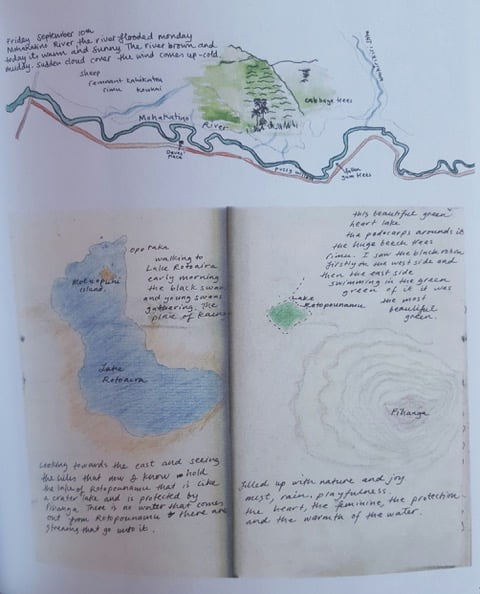 Friday September 10th
Mohakatino River the river flooded monday
today is warm and sunny The river brown and
muddy. Sudden cloud cover the wind comes up-cold.
sheep
remnant kahikatea
rimu kowhai
Mohakatino
River
cabbage trees
Daves
Place
pussy willow
gum trees
opotaka
Motuopuhi
island.
walking to
Lake Rotoaira
early morning
the black swan
and young swans
gathering. The
place of
Lake
Rotoaira
Looking towards the east and seeing
the hills that now I know hold
the lake of Rotopounamu that is like
a crater lake and is protected by
Pihanga. There is no water that comes
out from Rotopounamu & there are
streams that go into it.
this beautiful green
heart lake
the podocarps around it
the huge beech trees
rimu. I saw the black robin
firstly on the west side and
then the east side
swimming in the green
green of it it was
the most
beautiful
green.
Lake
Rotopounamu
Pihanga
filled up with nature and joy
mist, rain, playfulness.
the heart, the feminine, the protection
and the warmth of the water.